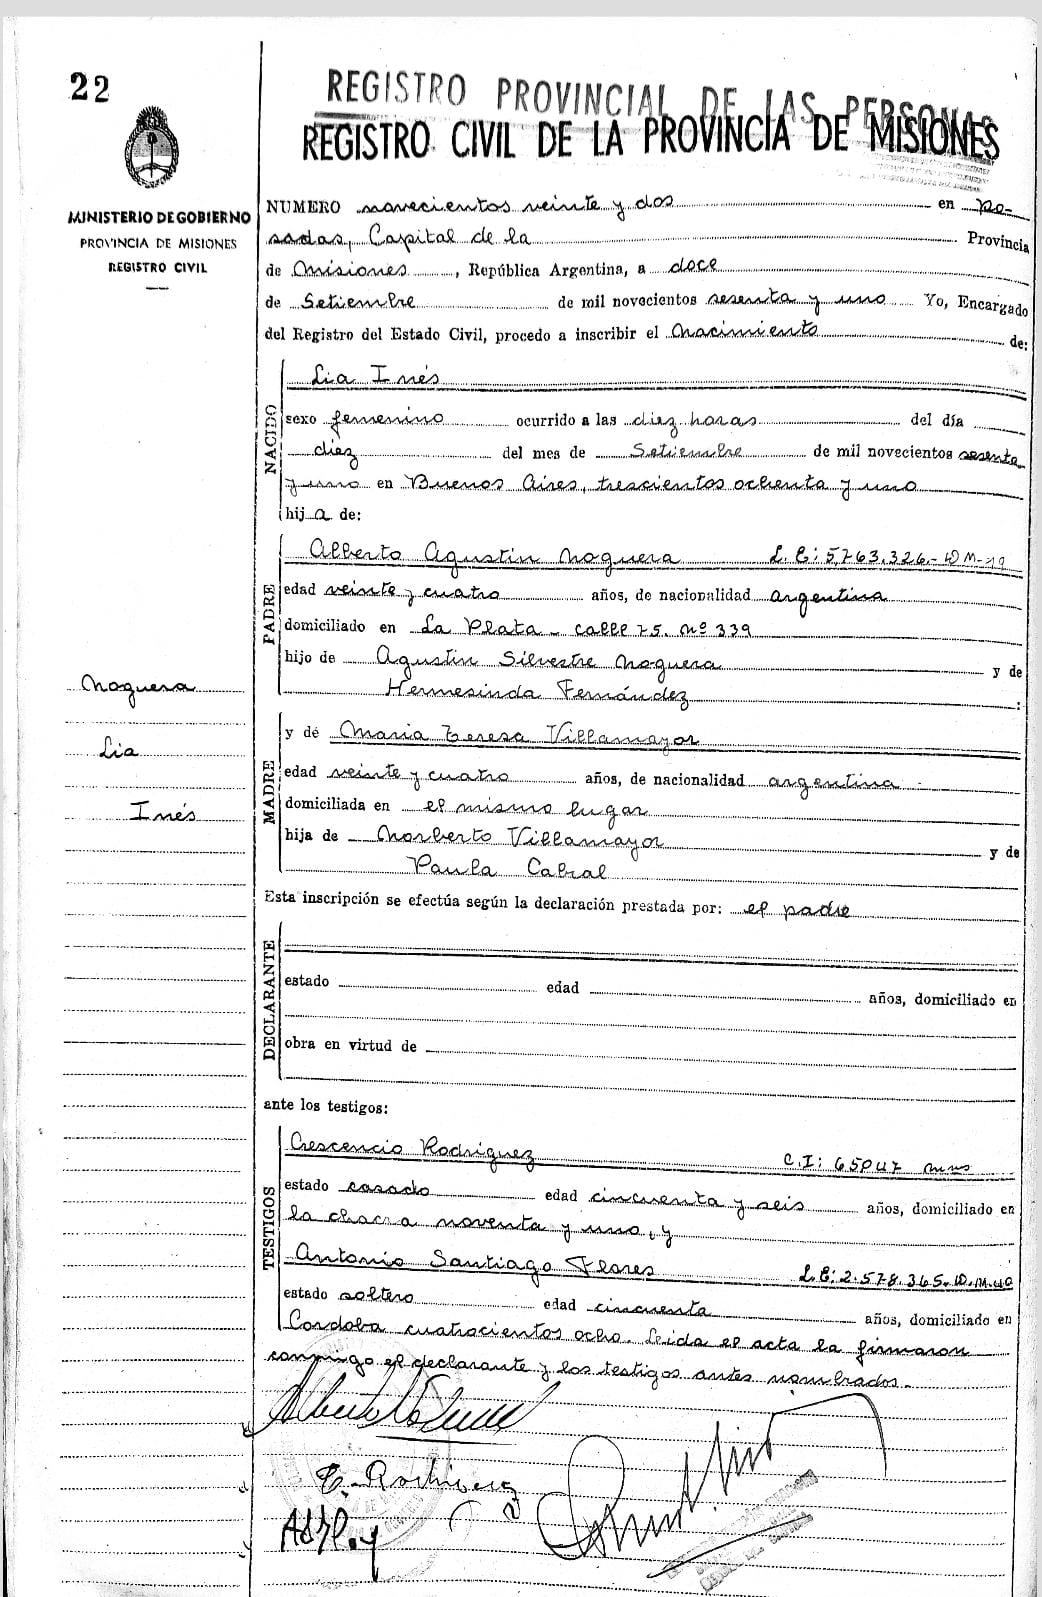 22
REGISTRO PROVINCIAL DE LAS PERSONAS
REGISTRO CIVIL DE LA PROVINCIA DE MISIONES
MINISTERIO DE GOBIERNO
PROVINCIA DE MISIONES
REGISTRO CIVIL
NUMERO novecientos veinte y dos en Po-
sadas, Capital de la Provincia
de Misiones, República Argentina, a doce
de Setiembre de mil novecientos sesenta y uno Yo, Encargado
del Registro del Estado Civil, procedo a inscribir el nacimiento de:
NACIDO
Lia Inés
sexo femenino ocurrido a las diez horas del día
diez del mes de Setiembre de mil novecientos sesenta
y uno en Buenos Aires, trescientos ochenta y uno
hija de:
PADRE
Alberto Agustin Noguera L.E: 5.763.326.- D M-19
edad veinte y cuatro años, de nacionalidad argentina
domiciliado en La Plata - calle 75. nº 339
hijo de Agustin Silvestre Noguera y de
Hermesinda Fernández :
Noguera
Lia
Inés
MADRE
y de Maria Teresa Villamayor
edad veinte y cuatro años, de nacionalidad argentina
domiciliada en el mismo lugar
hija de Norberto Villamayor y de
Paula Cabral
Esta inscripción se efectúa según la declaración prestada por: el padre
DECLARANTE
estado edad años, domiciliado en
obra en virtud de
ante los testigos:
TESTIGOS
Crescencio Rodriguez C.I: 65047 mns
estado casado edad cincuenta y seis años, domiciliado en
la chacra noventa y uno, y
Antonio Santiago Flores L.E: 2.578.365. D.M.40
estado soltero edad cincuenta años, domiciliado en
Cordoba cuatrocientos ocho. Leida el acta la firmaron
conmigo el declarante y los testigos antes nombrados.
C. Rodriguez